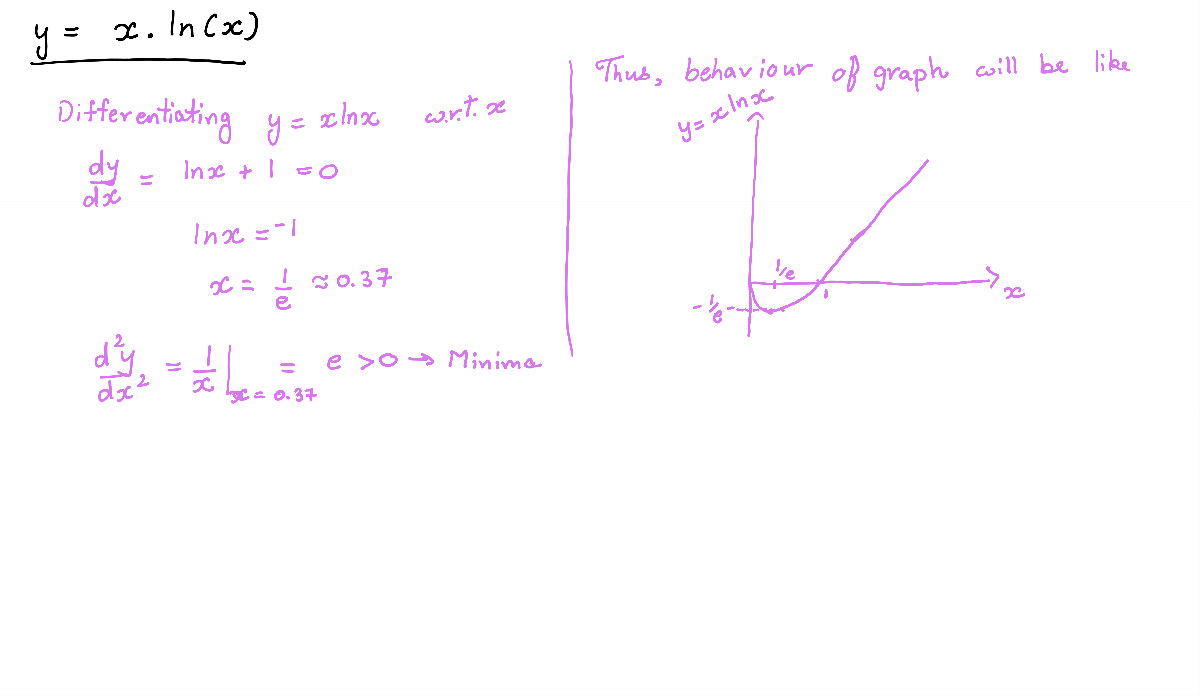 y = x . ln(x)
Differentiating y = xlnx w.r.t. x
dy/dx = lnx + 1 = 0
lnx = -1
x = 1/e ≈ 0.37
d²y/dx² = 1/x |x = 0.37 = e > 0 → Minima
Thus, behaviour of graph will be like
y = x lnx
1/e
1
x
-1/e